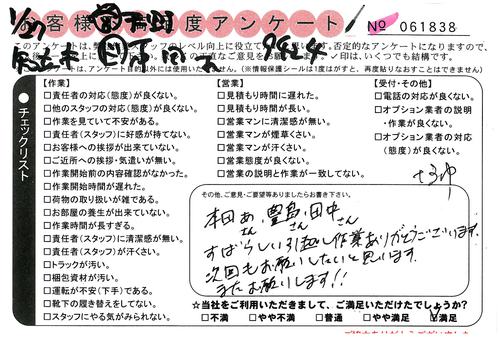 お客様満足度アンケート
No 061838
1/27
9824
✓印は、いくつでも結構です。
アンケートは、アンケート目的以外には使用いたしません。(※情報保護シールは1度はがすと、再度貼りなおすことはできません
チェックリスト
【作業】
□責任者の対応(態度)が良くない。
□他のスタッフの対応(態度)が良くない。
□作業を見ていて不安がある。
□責任者(スタッフ)に好感が持てない。
□お客様への挨拶が出来ていない。
□ご近所への挨拶・気遣いが無い。
□作業開始前の内容確認がなかった。
□作業開始時間が遅れた。
□荷物の取り扱いが雑である。
□お部屋の養生が出来ていない。
□作業時間が長すぎる。
□責任者(スタッフ)に清潔感が無い。
□責任者(スタッフ)が汗くさい。
□トラックが汚い。
□梱包資材が汚い。
□運転が不安(下手)である。
□靴下の履き替えをしてない。
□スタッフにやる気が感じられない。
【営業】
□見積もり時間に遅れた。
□見積もり時間が長い。
□営業マンに清潔感が無い。
□営業マンが煙草くさい。
□営業マンが汗くさい。
□営業態度が良くない。
□営業の説明と作業が一致してない。
【受付・その他】
□電話の対応が良くない。
□オプション業者の説明
・作業が良くない。
□オプション業者の対応
(態度)が良くない。
その他、ご意見・ご要望等ありましたらお書き下さい。
本田さん、豊島さん、田中さん
すばらしい引越し作業ありがとうございます。
次回もお願いしたいと思います。
またお願いします!!
☆当社をご利用いただきまして、ご満足いただけたでしょうか?
□不満 □やや不満 □普通 □やや満足 ☑満足